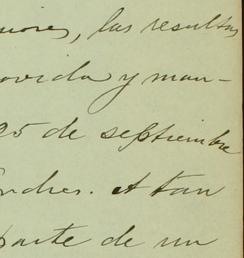 las resultas
ovida y man-
25 de septiembre
A tan
parte de un